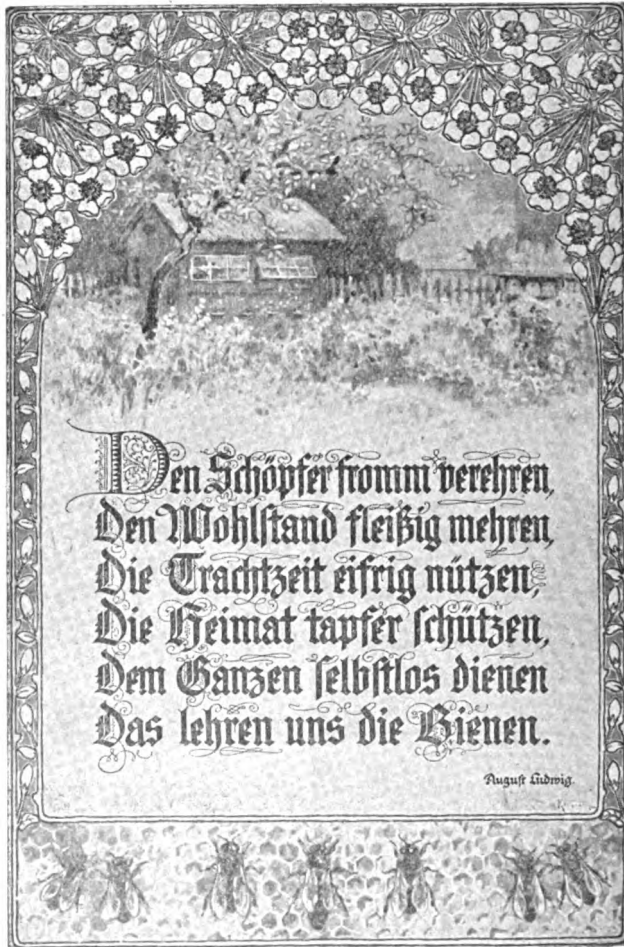 Den Schöpfer fromm verehren,
Den Wohlstand fleißig mehren,
Die Trachtzeit eifrig nützen,
Die Heimat tapfer schützen,
Dem Ganzen selbstlos dienen
Das lehren uns die Bienen.
August Ludwig.